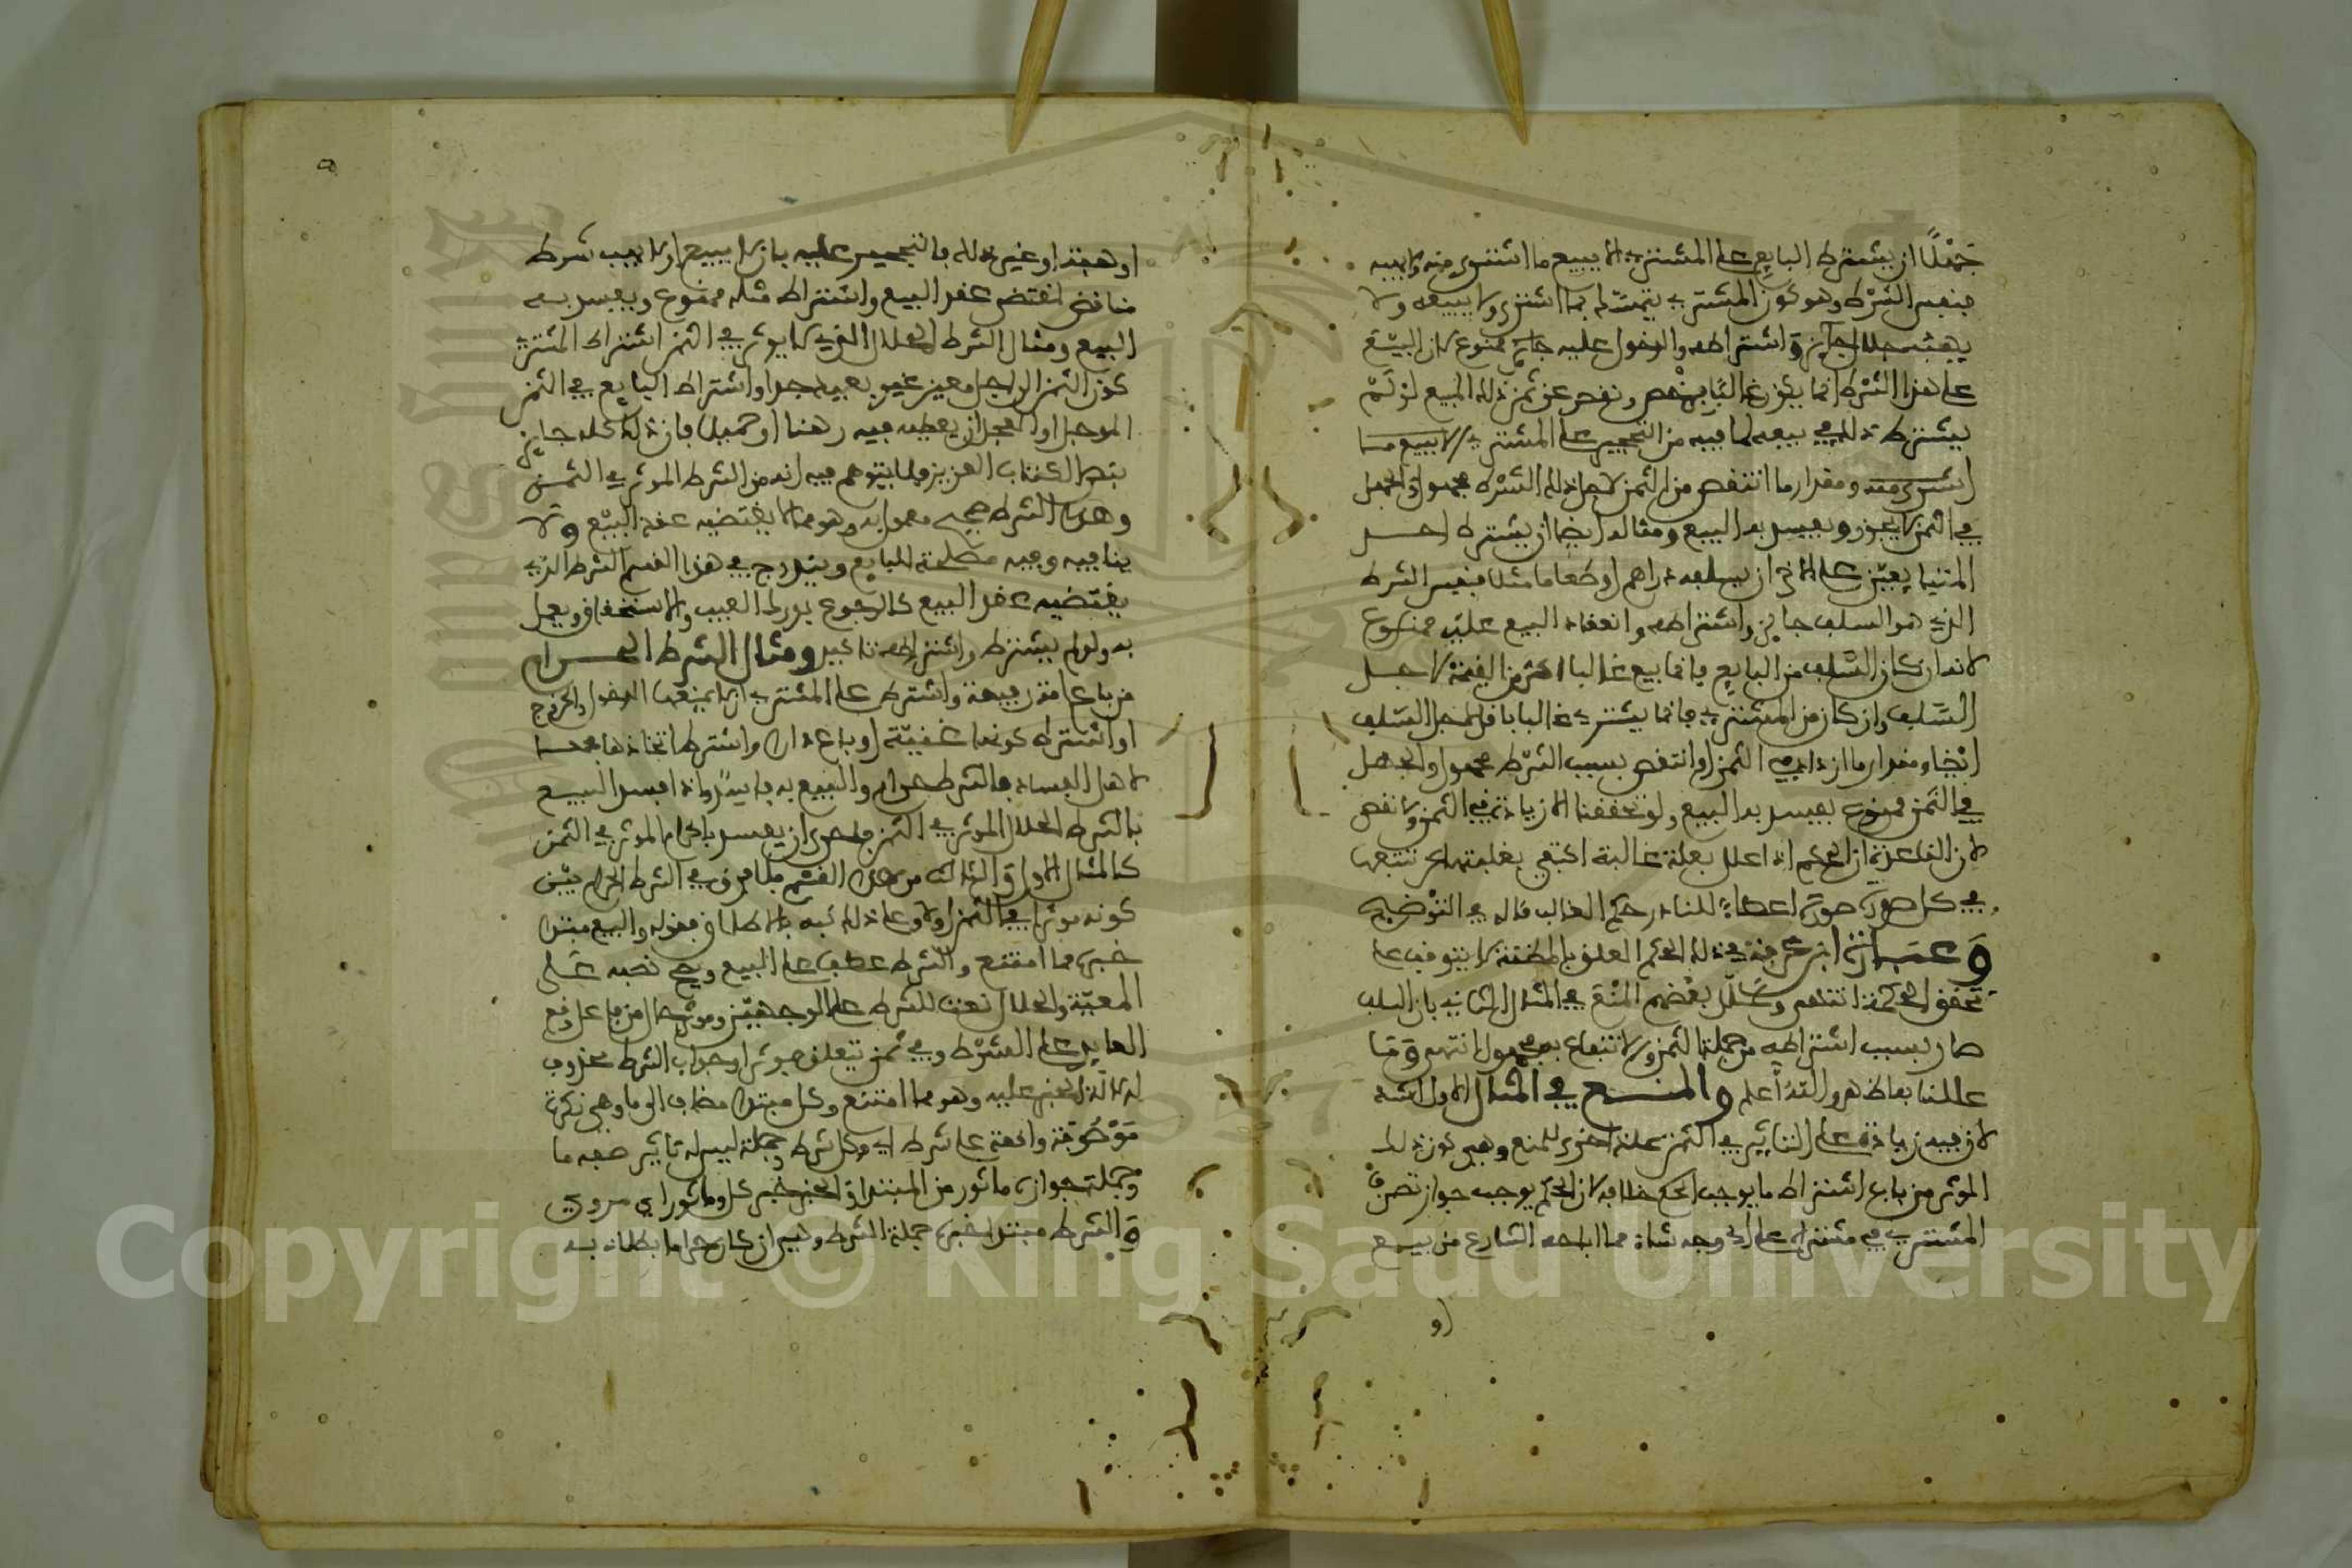 جَهْلًا ان يشترط البايع على المشتري الا يبيع ما اشترى منه ولا يهبه
فنفس الشرط وهو كون المشتري يتمسك بما اشترى ولا يبيعه ولا
يهبه حلال جايز واشتراطه والدخول عليه ممنوع لان البيع
على هذا الشرط انما يكون غالبا بنقص ونقص عن ثمن ذلك المبيع لو لم
يشترط ذلك في بيعه لما فيه من التحجير على المشتري الا يبيع ما
اشترى منه ومقدار ما انتقص من الثمن لاجل ذلك الشرط مجهول والجهل
في الثمن لا يجوز ويفسد به البيع ومثاله ايضا ان يشترط احد
المتبايعين على الاخر ان يسلفه دراهم او طعاما مثلا فنفس الشرط
الذي هو السلف جايز واشتراطه وانعقاد البيع عليه ممنوع
لانه ان كان السلف من البايع فانما يبيع غالبا باكثر من القيمة لاجل
السلف وان كان من المشتري فانما يشتري غالبا باقل لاجل السلف
ايضا ومقدار ما ازداد في الثمن او انتقص بسبب الشرط مجهول والجهل
في الثمن ممنوع يفسد به البيع ولو تحققنا الا زيادة في الثمن ولا نقص
لان القاعدة ان الحكم اذا علل بعلة غالبة اكتفي بغلبتها عن تتبعها
في كل صورة صورة اعطاء للنادر حكم الغالب قاله في التوضيح
وعبارة ابن عرفة في ذلك الحكم المعلق بالمظنة لا يتوقف على
تحقق الحكمة انتهى وعلل بعضهم المنع في المثال الثاني بان السلف
صار بسبب اشتراطه من جملة الثمن والانتفاع به مجهول انتهى وما
عللنا به اظهر والله أعلم والمنع في المثال الاول اشد
لان فيه زيادة على التاثير في الثمن علة اخرى للمنع وهي كون ذلك
الموثر من باب اشتراط ما يوجب الحكم خلافه لان الحكم يوجب جواز تصرف
المشتري في مشتراه على اي وجه شاء مما اباحه الشارع من بيع
او
او هبة او غير ذلك فالتحجير عليه بان لا يبيع او لا يهب شرط
مناقض لمقتضى عقد البيع واشتراط مثله ممنوع ويفسد به
البيع ومثال الشرط الحلال الذي لا يوثر في الثمن اشتراط المشتري
كون الثمن الى اجل معين غير بعيد جدا واشتراط البايع في الثمن
الموجل او المعجل ان يعطيه فيه رهنا او حميلا فان ذلك كله جايز
بنص الكتاب العزيز فلا يتوهم فيه انه من الشرط الموثر في الثمن
وهذا الشرط صحيح معمول به وهو مما لا يقتضيه عقد البيع ولا
ينافيه وفيه مصلحة للبايع ويندرج في هذا القسم الشرط الذي
يقتضيه عقد البيع كالرجوع بدرك العيب والاستحقاق ويعمل
به ولو لم يشترط واشتراطه تاكيد ومثال الشرط الحرام
من باع امة رفيعة واشترط على المشتري ان لا يمنعها الدخول والخروج
او اشترط كونها مغنية او باع دارا واشترط اتخاذها مجمعا
لاهل الفساد فالشرط حرام والبيع به فاسد واذا فسد البيع
بالشرط الحلال الموثر في الثمن فاحرى ان يفسد بالحرام الموثر في الثمن
كالمثال الاول والثالث من هذا القسم فلا فرق في الشرط الحرام بين
كونه موثرا في الثمن اولا وعلى ذلك نبه بالاطلاق بقوله والبيع مبتدا
خبره مما امتنع والشرط عطف على البيع ويصح نصبه على
المعية والحلال نعت للشرط على الوجهين وموثرا حال من فاعل وقع
العايد على الشرط وفي ثمن يتعلق بموثرا وجواب الشرط محذوف
لدلالة الخبر عليه وهو مما امتنع وكل مبتدا مضاف الى ما وهي نكرة
موصوفة واقعة على شرط اي وكل شرط وجملة ليس له تاثير صفة ما
وجملة جوازه ماثور من المبتدا والخبر خبر كل وماثور اي مروي
والشرط مبتدا خبره جملة الشرط وهي ان كان حراما بطلا به
Copyright © King Saud University